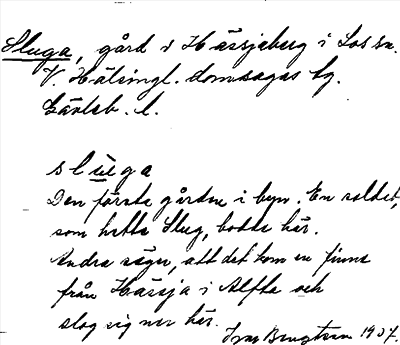 Sluga, gård i Hässjaberg i Los sn.
V. Hälsingl. domsagas tg.
Gävleb. l.
slu̲ga
Den första gården i byn. En soldat,
som hette Slug, bodde här.
Andra säger, att det kom en finne
från Hässja i Alfta och
slog sig ner här.
Ivar Bengtsson 1937.